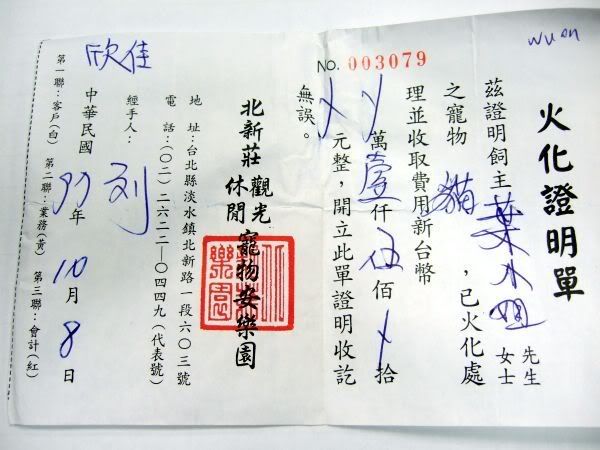 NO. 003079
火化證明單
茲證明飼主葉小姐先生女士
之寵物 貓,已火化處
理並收取費用新台幣
萬壹仟伍佰 拾
元整,開立此單證明收訖
無誤。
北新莊觀光休閒寵物安樂園
地 址:台北縣淡水鎮北新路一段六○三號
電 話:(○二)二六二二—○四四九(代表號)
經手人:刘
中華民國97年10月8日
第一聯:客戶(白) 第二聯:業務(黃) 第三聯:會計(紅)
欣佳